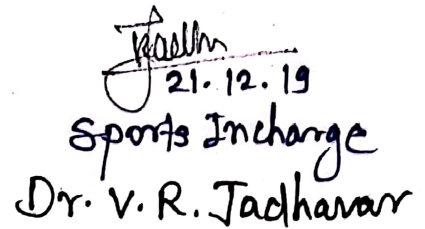 21.12.19
Sports Incharge
Dr. V. R. Jadhavar